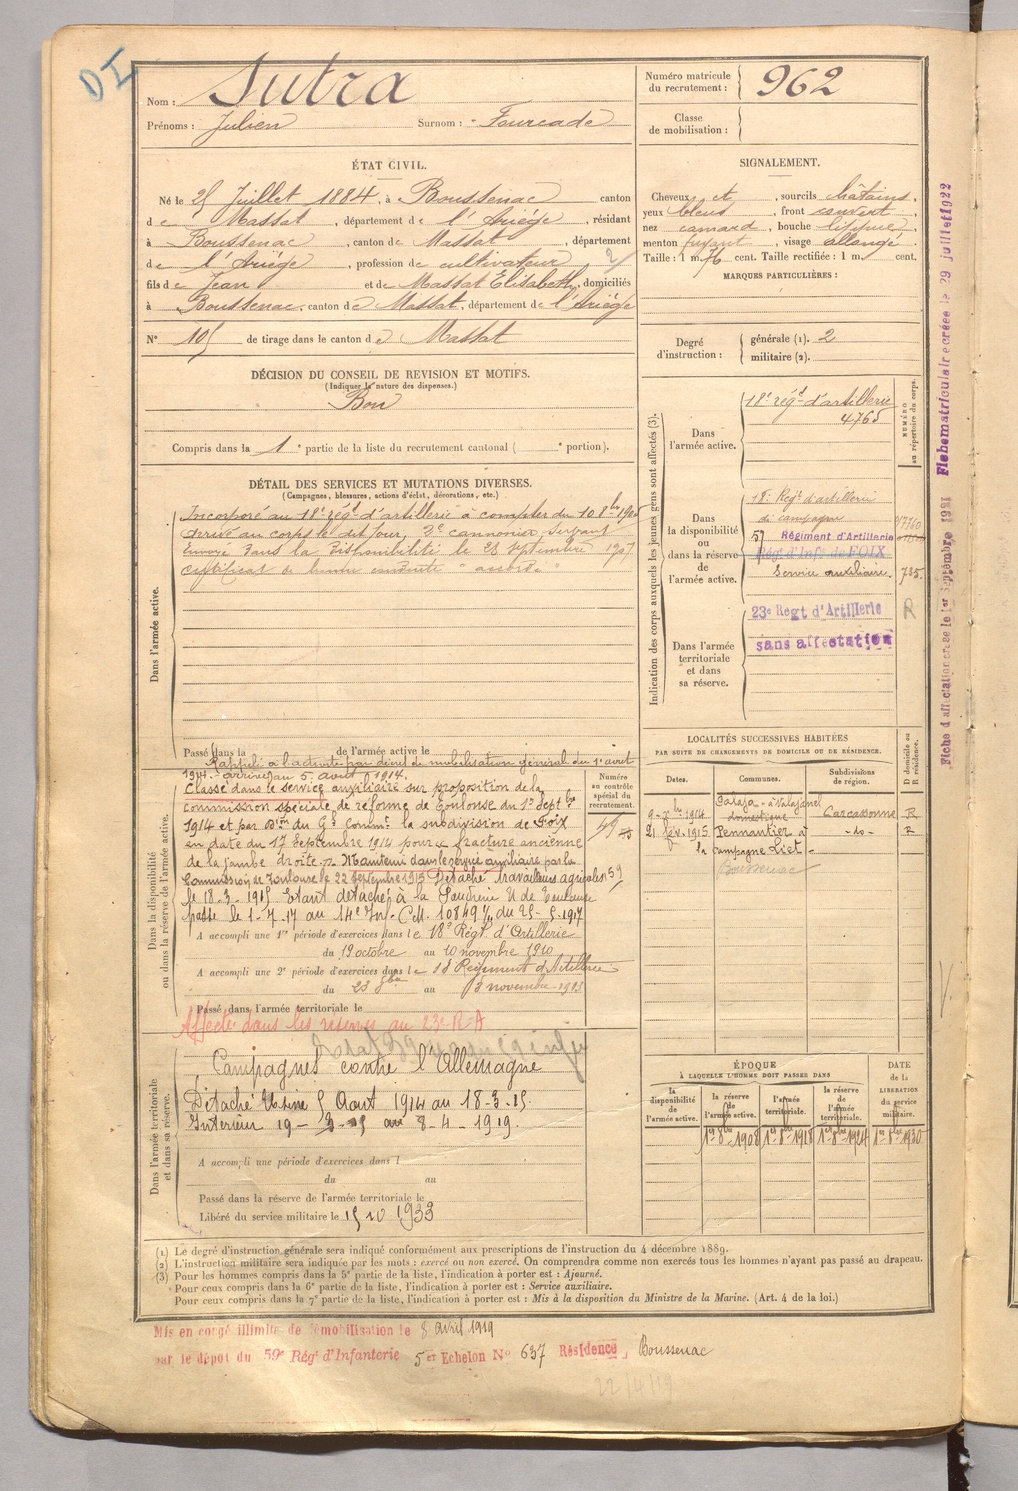 DI
Nom : Sutra
Prénoms : Julien Surnom : - Fourcade
Numéro matricule du recrutement : 962
Classe de mobilisation :
ÉTAT CIVIL.
Né le 25 Juillet 1884, à Boussenac canton
de Massat, département de l'Ariège, résidant
à Boussenac, canton de Massat, département
de l'Ariège, profession de cultivateur
fils de Jean et de Massat Elisabeth, domiciliés
à Boussenac, canton de Massat, département de l'Ariège
N° 105 de tirage dans le canton de Massat
SIGNALEMENT.
Cheveux et, sourcils châtains.
yeux bleus, front couvert
nez camard, bouche
menton fuyant, visage allongé
Taille : 1 m. 76 cent. Taille rectifiée : 1 m. cent.
MARQUES PARTICULIÈRES :
Degré d'instruction : générale (1). 2
militaire (2).
DÉCISION DU CONSEIL DE REVISION ET MOTIFS.
(Indiquer la nature des dispenses.)
Bon
Compris dans la 1e partie de la liste du recrutement cantonal ( e portion).
DÉTAIL DES SERVICES ET MUTATIONS DIVERSES.
(Campagnes, blessures, actions d'éclat, décorations, etc.)
Dans l'armée active.
Incorporé au 18e rég.t d'artillerie à compter du 10 8bre
Arrivé au corps le dit jour, 2e cannonier servant
Envoyé dans la disponibilité le 28 septembre 1907
Certificat de bonne conduite "accordé"
Passé dans la de l'armée active le
Indication des corps auxquels les jeunes gens sont affectés (3).
NUMÉRO au répertoire du corps.
Dans l'armée active.
18e rég.t d'artillerie
4765
Dans la disponibilité ou dans la réserve de l'armée active.
18e Rég.t d'artillerie
de campagne
57 Régiment d'Artillerie
Rég.t d'Inf.ie de FOIX
Service auxiliaire. 785.
R
Dans l'armée territoriale et dans sa réserve.
23e Regt d'Artillerie
sans affectation
Dans la disponibilité ou dans la réserve de l'armée active.
Rappelé à l'activité par décret de mobilisation générale du 1er août
1914. - arrivé au 5 août 1914.
Classé dans le service auxiliaire sur proposition de la
Commission spéciale de réforme de Toulouse du 1er Sept.bre
1914 et par D.on du G.al Comm.t la subdivision de Foix
en date du 17 Septembre 1914 pour fracture ancienne
de la jambe droite. Maintenu dans le service auxiliaire par la
Commission de Toulouse le 22 septembre 1915 Détaché travailleurs agricoles 59
le 18-3-1915 Etant détaché à la Poudrerie N de Toulouse
passe le 1-7-17 au 14e Inf. C.M. 10849 1/11 du 25-5-1917
A accompli une 1re période d'exercices dans le 18e Régt d'Artillerie
du 19 octobre au 10 novembre 1910
A accompli une 2e période d'exercices dans le 18 Régiment d'Artillerie
du 23 8bre au 13 novembre 1913
Passé dans l'armée territoriale le
Affecté dans les réserves au 23e R A
Numéro au contrôle spécial du recrutement.
LOCALITÉS SUCCESSIVES HABITÉES
PAR SUITE DE CHANGEMENTS DE DOMICILE OU DE RÉSIDENCE.
D domicile ou R résidence.
Dates. Communes. Subdivisions de région.
1914 Palaja - domestique Carcassonne R
21 fév. 1915 Pennautier à -do- R
la campagne Liet -
Boussenac
Dans l'armée territoriale et dans sa réserve.
Campagnes contre l'Allemagne
Détaché Usine 5 Aout 1914 au 18-3-15
Interieur 19 - 3 - 15 au 8 - 4 - 1919.
A accompli une période d'exercices dans l
du au
Passé dans la réserve de l'armée territoriale le
Libéré du service militaire le 15 10 1933
ÉPOQUE À LAQUELLE L'HOMME DOIT PASSER DANS
DATE de la LIBÉRATION du service militaire.
la disponibilité de l'armée active.
la réserve de l'armée active.
l'armée territoriale.
la réserve de l'armée territoriale.
1er 8bre 1908 1er 8bre 1918 1er 8bre 1924 1er 8bre 1930
(1) Le degré d'instruction générale sera indiqué conformément aux prescriptions de l'instruction du 4 décembre 1889.
(2) L'instruction militaire sera indiquée par les mots : exercé ou non exercé. On comprendra comme non exercés tous les hommes n'ayant pas passé au drapeau.
(3) Pour les hommes compris dans la 5e partie de la liste, l'indication à porter est : Ajourné.
Pour ceux compris dans la 6e partie de la liste, l'indication à porter est : Service auxiliaire.
Pour ceux compris dans la 7e partie de la liste, l'indication à porter est : Mis à la disposition du Ministre de la Marine. (Art. 4 de la loi.)
Mis en congé illimité de démobilisation le 8 avril 1919
par le dépôt du 59e Régt d'Infanterie 5er Echelon N° 637 Résidence, Boussenac
22/4/19
Fiche d'affectation créée le 1er Septembre 1921 Fiche matriculaire créée le 29 juillet 1922